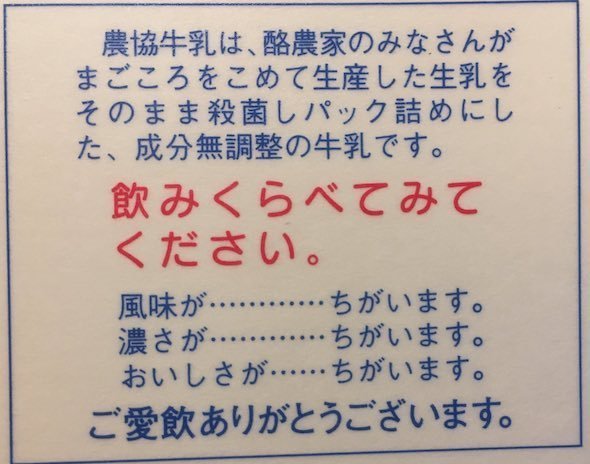 農協牛乳は、酪農家のみなさんが
まごころをこめて生産した生乳を
そのまま殺菌しパック詰めにし
た、成分無調整の牛乳です。
飲みくらべてみて
ください。
風味が…………ちがいます。
濃さが…………ちがいます。
おいしさが……ちがいます。
ご愛飲ありがとうございます。